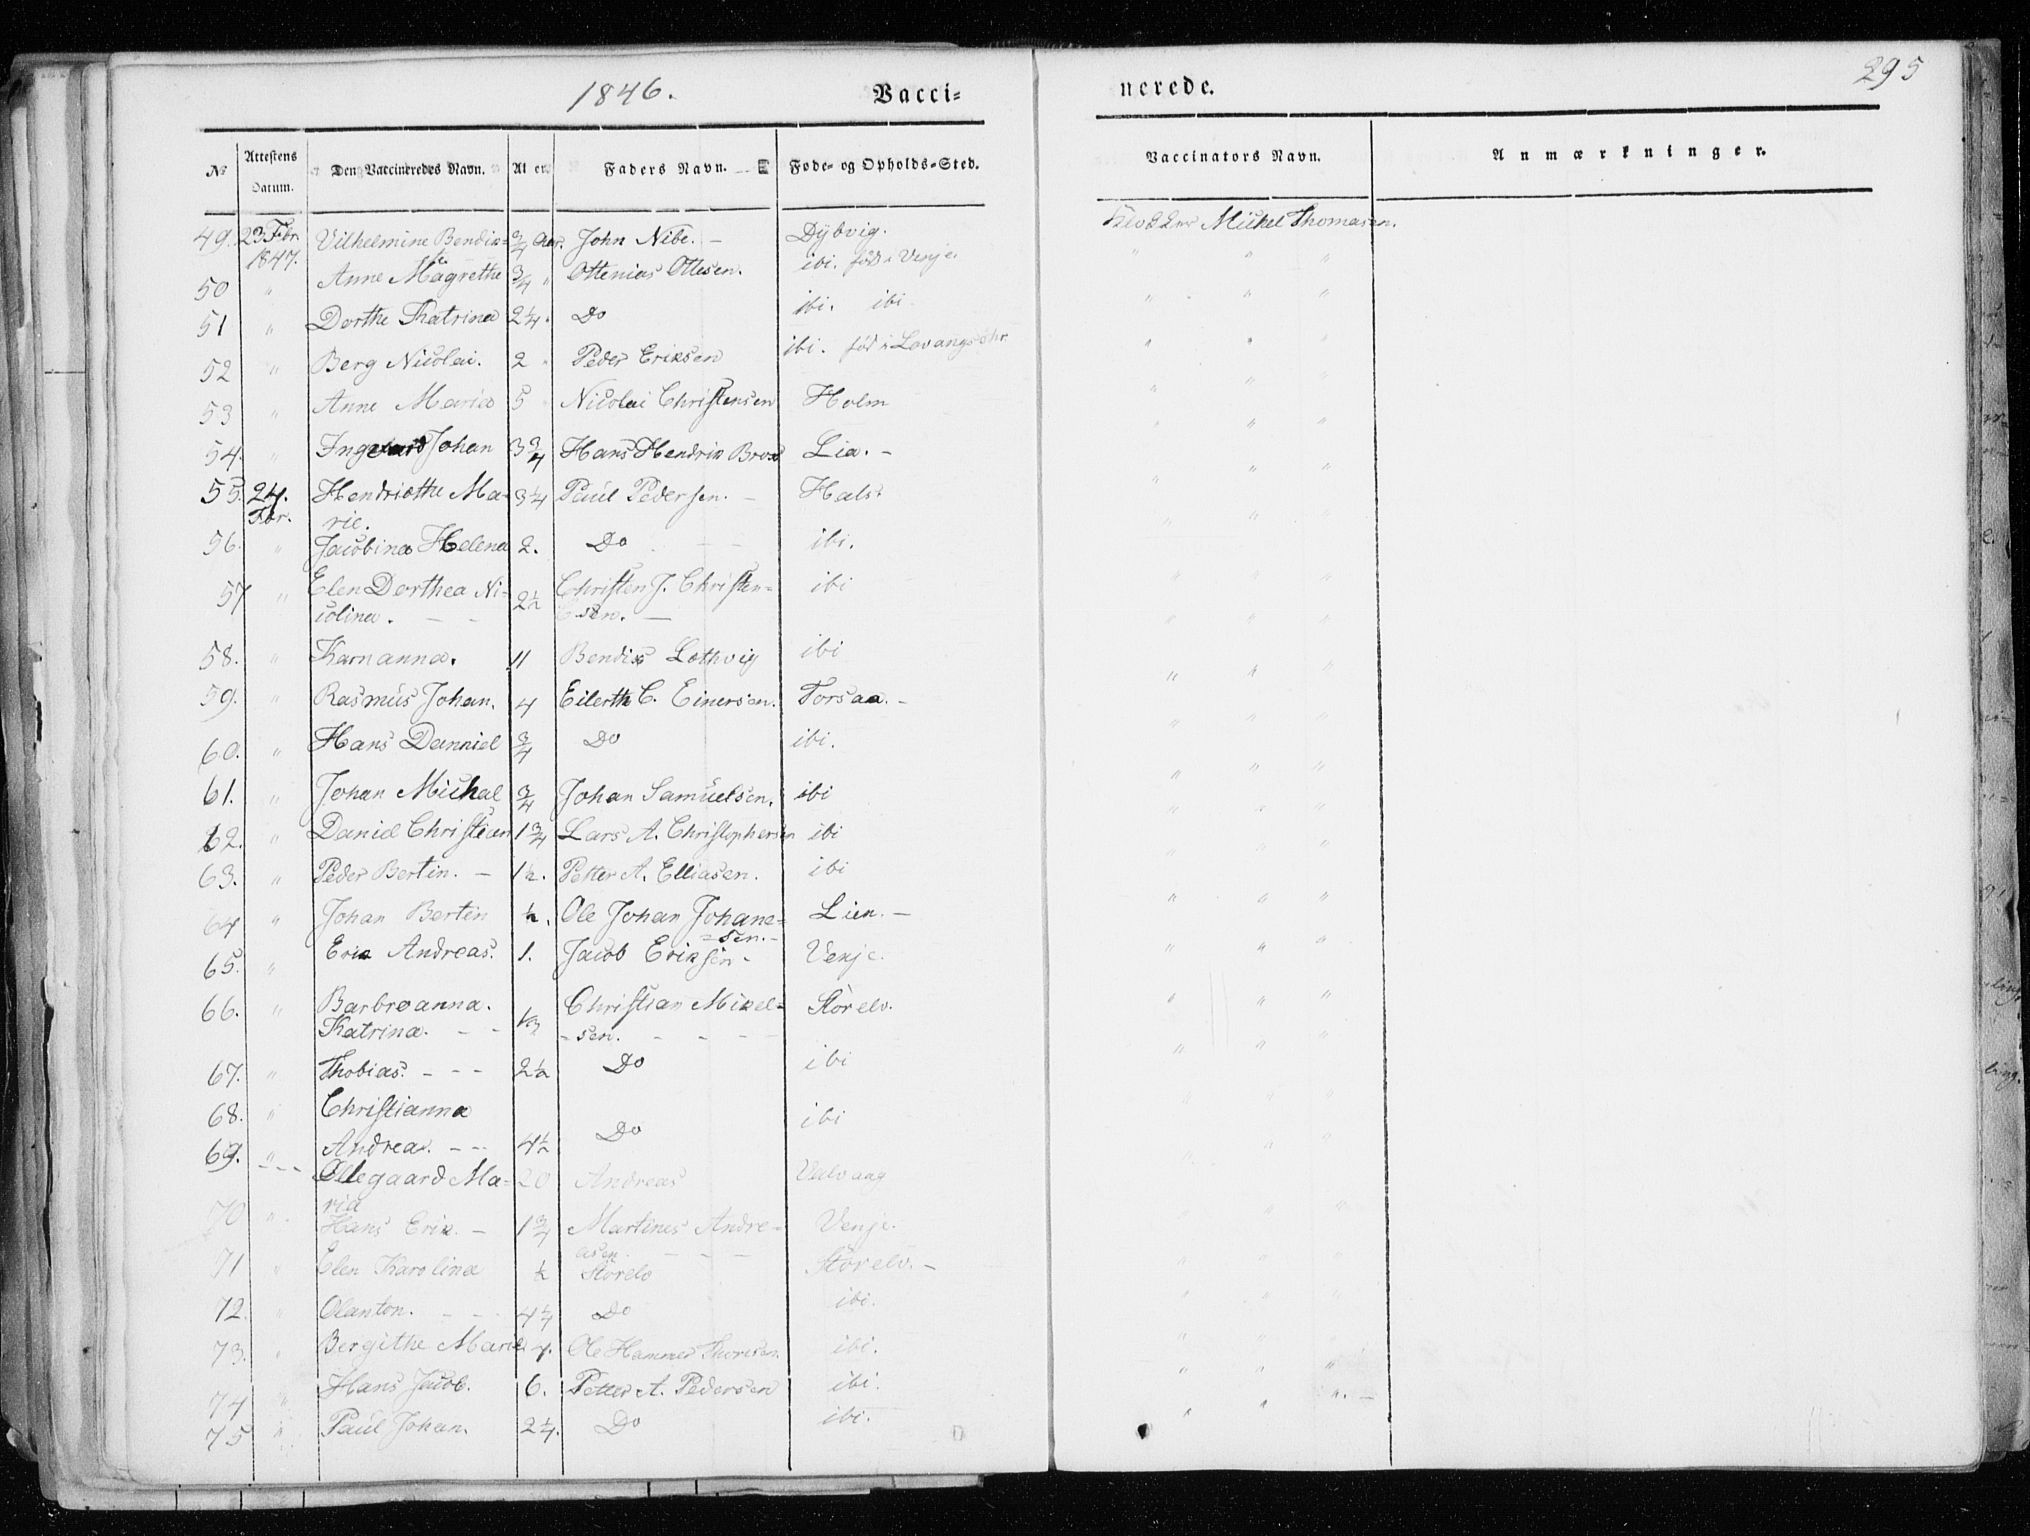 1846. Vacci= nerede. 295
No Attestens Datum. Den Vaccineredes Navn. Alder Faders Navn. Føde- og Opholds-Sted. Vaccinators Navn. Anmærkninger.
49. 23 Febr. Vilhelmine Bendix= 3/4 Aar. John Nibe. - Dybvig. Klokker Mickel Thomasen.
1847.
50 " Anne Magrethe 3/4 " Ottenias Ottesen. ibi. fød i Venje. " " "
51 " Dorthe Katrina 2 1/4. Do ibi. ibi. " " "
52 " Berg Nicolai. 2 " Peder Eriksen ibi. fød i " " "
53 " Anne Maria 5 " Nicolai Christensen Holm " " "
54. " Johan 3 3/4 Hans Hendrik Brox Lia. - " " "
55. 24. Hendricthe Ma- 3 1/4 Paul Pedersen. - Hals " " "
Fbr. rie.
56. " Jacobina Helena 2. Do - - ibi. " " "
57 " Elen Dorthea Ni- 2 1/2 Christen J. Christen= ibi " " "
colina. - - sen. -
58. " Karnanna. 11 Bendix Lothvig ibi " " "
59. " Rasmus Johan. 4 Eilerth C. Einersen. Torsaa. - " " "
60. " Hans Danniel 3/4 Do ibi. " " "
61. " Johan Michal 3/4 Johan Samuelsen. ibi " " "
62. " Daniel Christian 1 3/4 Lars A. Christophersen ibi " " "
63. " Peder Bertin. - 1 1/2. Petter A. Elliasen. ibi " " "
64 " Johan Bertin 1/2. Ole Johan Johane= Lien. - " " "
=sen. -
65. " Erik Andreas. 1. Jacob Eriksen - Venje. " " "
66. " Barbroanna. Christian Mikel= Storelv. " " "
Katrina. - - =sen. - - - -
67. " Thobias. - - - 2 1/2 Do ibi " " "
68. " Christianna
Do ibi " " "
69. " - - - Andrea. - - 4 1/2
Ollegaard Ma= 20 Andreas Valvaag " "
70 " ria
Hans Erik. - 1 3/4 Martines Andre= Venje. " "
asen. - - -
71 " Elen Karolina 1/2 Storelv Storelv. - " " "
72. " Olanton. - - - 4 1/4 Do ibi. " " "
73. " Bergithe Marie 7. Ole Hammer Thoresen. ibi. " "
74 " Hans Jacob. 6. Petter A. Pedersen ibi. " " "
75 " Paul Johan. 2 1/4. Do ibi. " " ". -